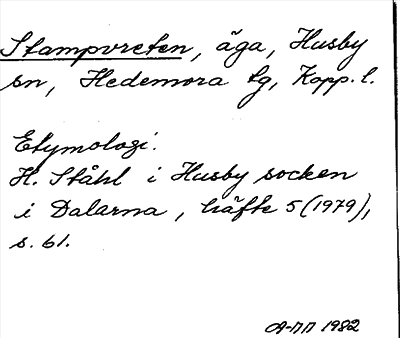 Stampvreten, äga, Husby
sn, Hedemora tg, Kopp. l.
Etymologi.
H. Ståhl i Husby socken
i Dalarna, häfte 5 (1979),
s. 61.
1982